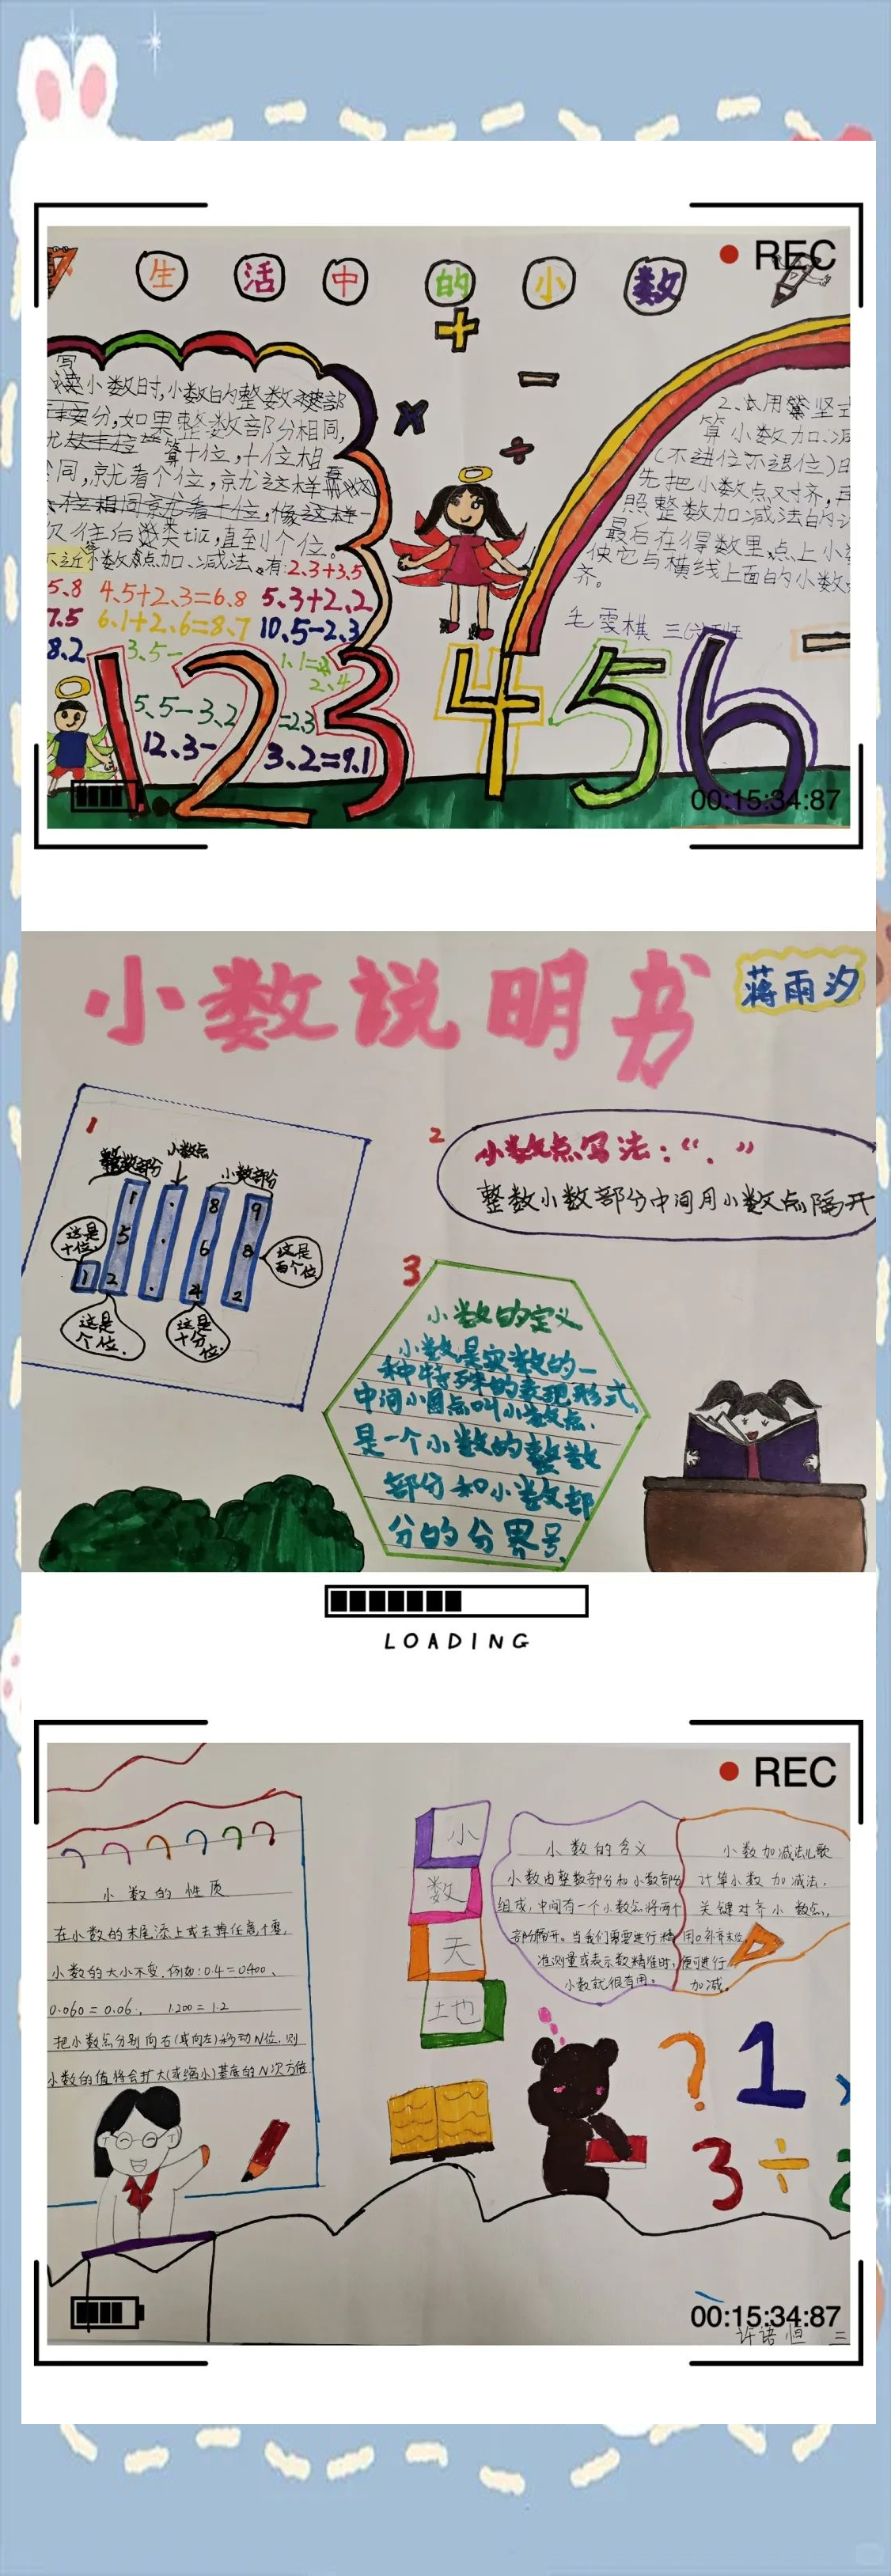 生活中的小数
REC
写
读小数时,小数的整数部
分,如果整数部分相同,
十位,十位相
同,就看个位,就这样
次往后类推,直到个位。
小数点加、减法。有:2.3+3.5
5.8 4.5+2.3=6.8 5.3+2.2
7.5 6.1+2.6=8.7 10.5-2.3
8.2 3.5- 1.1=
2.4
5.5-3.2 =2.3
12.3- 3.2=9.1
2、用竖式
算小数加减
(不进位不退位)时
先把小数点对齐,再
照整数加减法的
最后在得数里点上小
使它与横线上面的小数
齐。
毛雯棋 三(6)班
1 2 3 4 5 6
00:15:34:87
小数说明书
蒋雨汐
1
整数部分 小数点 小数部分
1 . 8 9
5 . 6 8
1 2 . 4 2
这是十位.
这是个位.
这是十分位.
这是百个位
2
小数点写法:“.”
整数小数部分中间用小数点隔开
3
小数的定义
小数是实数的一
种特殊的表现形式,
中间小圆点叫小数点.
是一个小数的整数
部分和小数部
分的分界号.
LOADING
REC
小数的性质
在小数的末尾添上或去掉任意个零,
小数的大小不变.例如:0.4=0.400、
0.060=0.06, 1.200=1.2
把小数点分别向右(或向左)移动N位.则
小数的值将会扩大(或缩小)基底的N次方倍
小
数
天
地
小数的含义
小数由整数部分和小数部分
组成,中间有一个小数点将两个
部分隔开。当我们需要进行精
准测量或表示数精准时,
小数就很有用。
小数加减法儿歌
计算小数加减法.
关键对齐小数点,
用0补齐末位,
便可进行
加减.
? 1
3 ÷ 2
00:15:34:87
许语恒 三